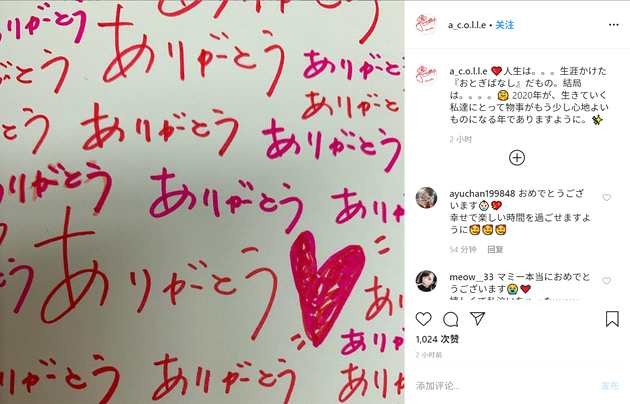 りがとう
ありがとう
ありがと
がとう
ありがとう
ありがと
とう
ありがとう
ありがとう
りがとう
ありがとう
ありが
ありがとう
とう
あり
ありが
りがとう
ありがとう
ありが
a_c.o.l.l.e • 关注
a_c.o.l.l.e ❤️人生は。。。生涯かけた
『おとぎばなし』だもの。結局
は。。。。😊 2020年が、生きていく
私達にとって物事がもう少し心地よい
ものになる年でありますように。✨
2 小时
ayuchan199848 おめでとうござ
います👶🏻❤️
幸せで楽しい時間を過ごせますよ
うに🥰🥰🥰
54 分钟 回复
meow__33 マミー本当におめでと
うございます😭❤️
1,024 次赞
2 小时前
添加评论...
发布